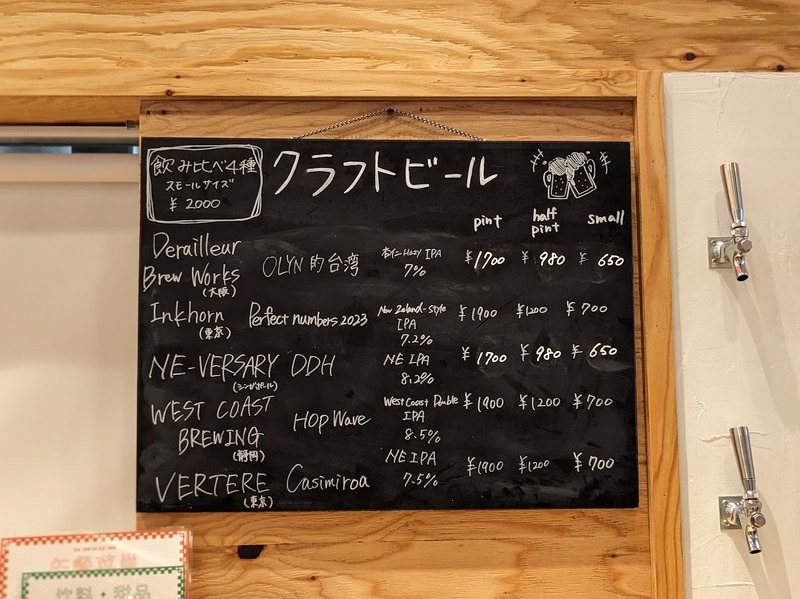 飲み比べ4種
スモールサイズ
¥ 2000
クラフトビール
pint
half pint
small
Derailleur
Brew Works
(大阪)
OLYN的台湾
杏仁Hazy IPA
7%
¥1700 ¥ 980 ¥ 650
Inkhorn
(東京)
Perfect numbers 2023
New Zoland-style
IPA
7.2%
¥1900 ¥1200 ¥ 700
NE-VERSARY DDH
(シンガポール)
NE IPA
8.2%
¥1700 ¥980 ¥ 650
WEST COAST
BREWING
(静岡)
Hop Wave
West Coast Double
IPA
8.5%
¥1900 ¥1200 ¥700
VERTERE
(東京)
Casimiroa
NE IPA
7.5%
¥1900 ¥1200 ¥700
午餐菜単
飲料・甜品